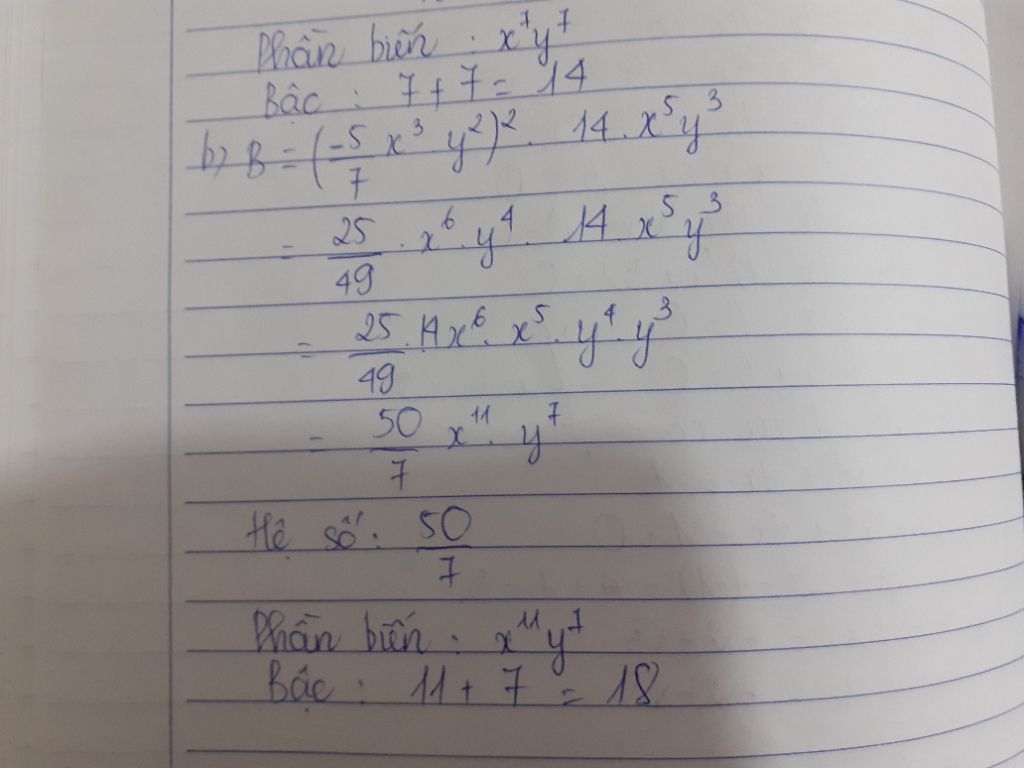 Phần biến : x⁷y⁷
Bậc : 7 + 7 = 14
b, B = (-5/7 x³ y²)² . 14 . x⁵y³
= 25/49 . x⁶ . y⁴ . 14 . x⁵ y³
= 25/49 . 14 x⁶ . x⁵ . y⁴ . y³
= 50/7 x¹¹ . y⁷
Hệ số : 50/7
Phần biến : x¹¹y⁷
Bậc : 11 + 7 = 18